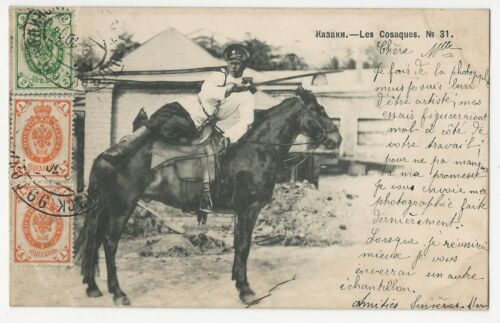 Казаки.—Les Cosaques. № 31.
Chère Mlle
Je fais de la photographie
mais je suis loin
d'être artiste; mes
essais figureraient
mal à côté de
votre travail!
pour ne pa manquer
à ma promesse
Je vous envoie ma
photographie faite
dernièrement.
Lorsque je réussirai
mieux je vous
enverrai un autre
échantillon.
Amitiés Sincères
1
1